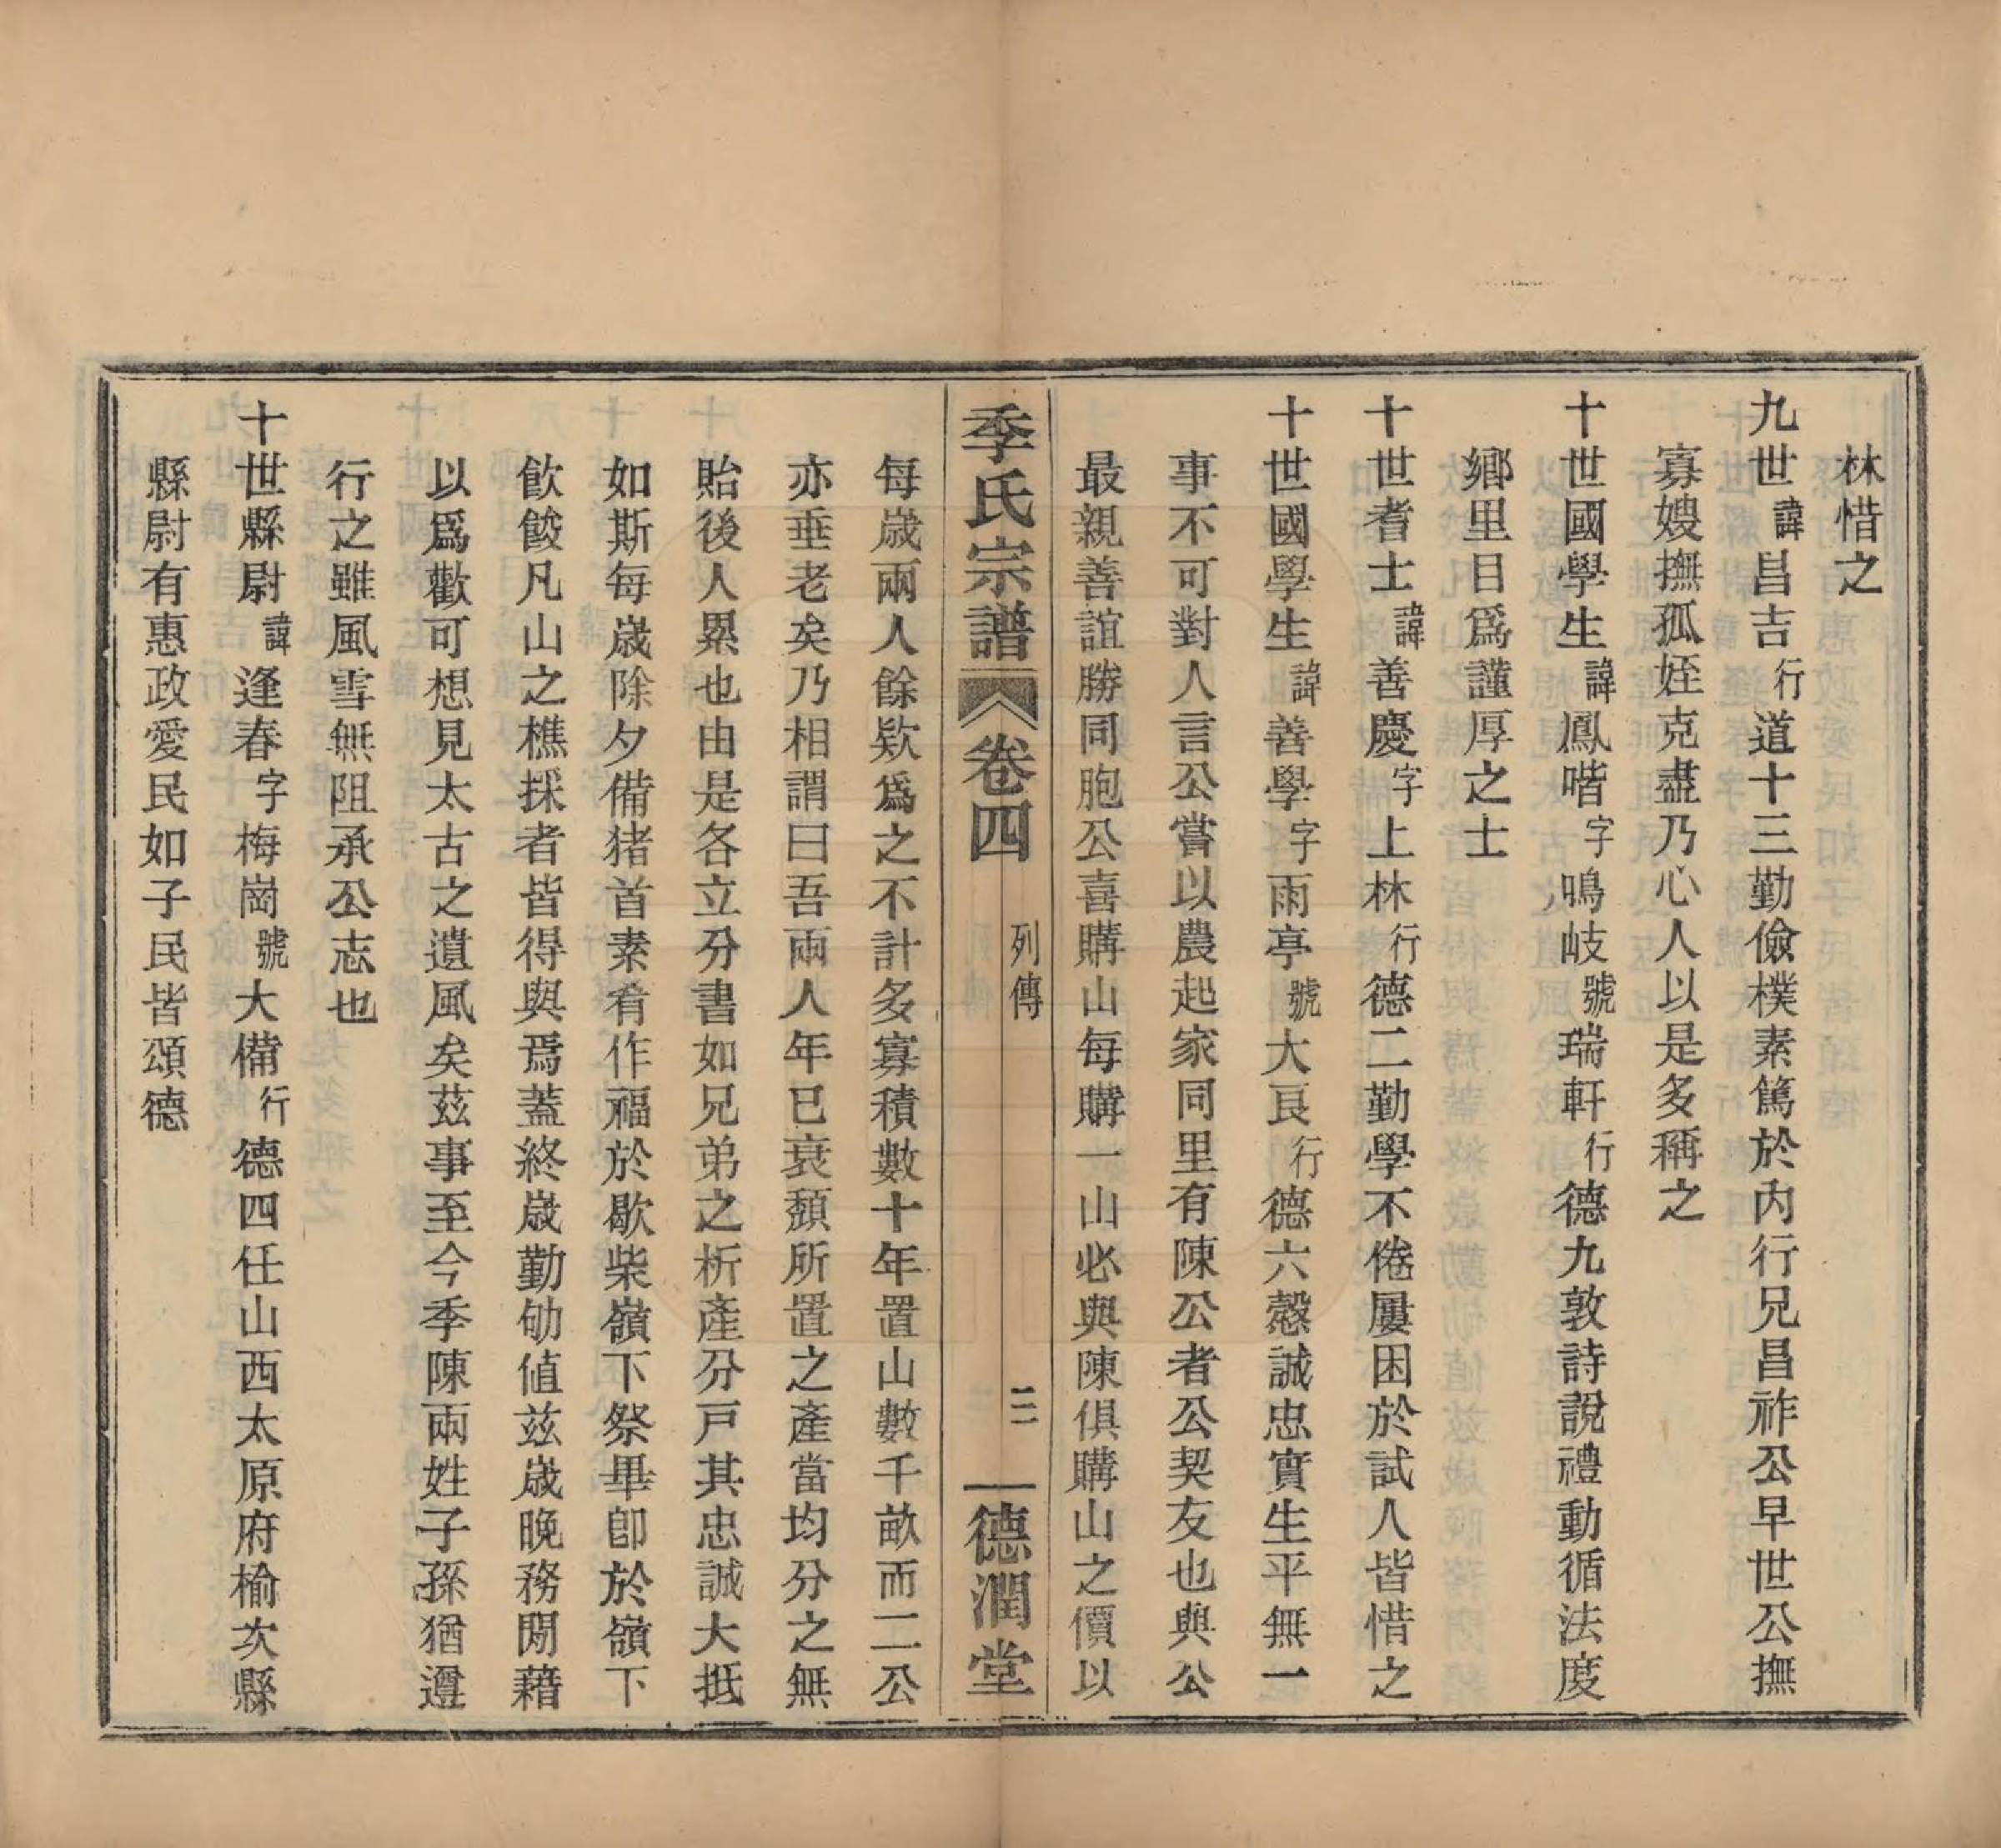 林惜之
九世諱昌吉行道十三勤儉樸素篤於內行兄昌祚公早世公撫
寡嫂撫孤姪克盡乃心人以是多稱之
十世國學生諱鳳喈字鳴岐號瑞軒行德九敦詩說禮動循法度
鄉里目爲謹厚之士
十世耆士諱善慶字上林行德二勤學不倦屢困於試人皆惜之
十世國學生諱善學字雨亭號大艮行德六慤誠忠實生平無一
事不可對人言公嘗以農起家同里有陳公者公契友也與公
最親善誼勝同胞公喜購山每購一山必與陳俱購山之價以
季氏宗譜 卷四 列傳 二 德潤堂
每歲兩人餘欵爲之不計多寡積數十年置山數千畝而二公
亦垂老矣乃相謂曰吾兩人年已衰頹所置之產當均分之無
貽後人累也由是各立分書如兄弟之析產分戸其忠誠大抵
如斯每歲除夕備猪首素肴作福於歇柴嶺下祭畢卽於嶺下
飲餕凡山之樵採者皆得與焉蓋終歲勤劬值兹歲晚務閒藉
以爲歡可想見太古之遺風矣茲事至今季陳兩姓子孫猶遵
行之雖風雪無阻承公志也
十世縣尉諱逢春字梅崗號大備行德四任山西太原府榆次縣
縣尉有惠政愛民如子民皆頌德